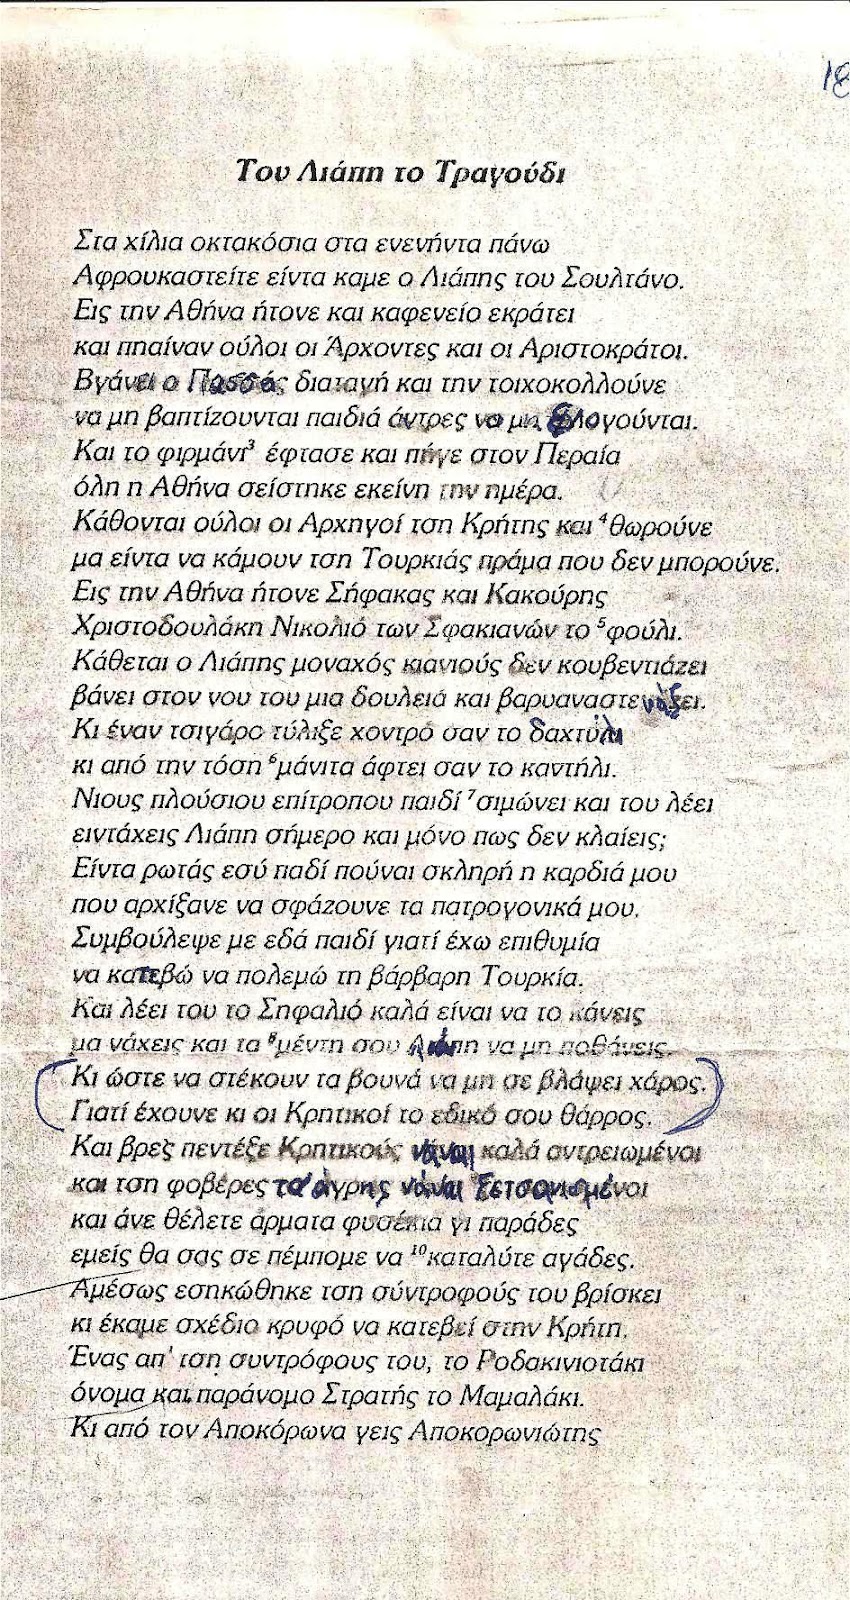 18
Του Λιάπη το Τραγούδι
Στα χίλια οκτακόσια στα ενενήντα πάνω
Αφρουκαστείτε είντα καμε ο Λιάπης του Σουλτάνο.
Εις την Αθήνα ήτονε και καφενείο εκράτει
και πηαίναν ούλοι οι Άρχοντες και οι Αριστοκράτοι.
Βγάνει ο Πασσάς διαταγή και την τοιχοκολλούνε
να μη βαπτίζουνται παιδιά άντρες να μη βλογούνται.
Και το φιρμάνι³ έφτασε και πήγε στον Περαία
όλη η Αθήνα σείστηκε εκείνη την ημέρα.
Κάθονται ούλοι οι Αρχηγοί τση Κρήτης και ⁴θωρούνε
μα είντα να κάμουν τση Τουρκιάς πράμα που δεν μπορούνε.
Εις την Αθήνα ήτονε Σήφακας και Κακούρης
Χριστοδουλάκη Νικολιό των Σφακιανών το ⁵φούλι.
Κάθεται ο Λιάπης μοναχός κιανιούς δεν κουβεντιάζει
βάνει στον νου του μια δουλειά και βαρυαναστενάζει.
Κι έναν τσιγάρο τύλιξε χοντρό σαν το δαχτύλι
κι από την τόση ⁶μάνιτα άφτει σαν το καντήλι.
Νιους πλούσιου επίτροπου παιδί ⁷σιμώνει και του λέει
ειντάχεις Λιάπη σήμερο και μόνο πως δεν κλαίεις;
Είντα ρωτάς εσύ παδί πούναι σκληρή η καρδιά μου
που αρχίξανε να σφάζουνε τα πατρογονικά μου.
Συμβούλεψε με εδά παιδί γιατί έχω επιθυμία
να κατεβώ να πολεμώ τη βάρβαρη Τουρκία.
Και λέει του το Σηφαλιό καλά είναι να το κάνεις
μα νάχεις και τα ⁸μέντη σου Λιάπη να μη ποθάνεις.
Κι ώστε να στέκουν τα βουνά να μη σε βλάψει χάρος.
Γιατί έχουνε κι οι Κρητικοί το εδικό σου θάρρος.
Και βρες πεντέξε Κρητικούς νάναι καλά αντρειωμένοι
και τση φοβέρες τσ' άγρης νάναι ξετσανισμένοι
και άνε θέλετε άρματα φυσέκια γι παράδες
εμείς θα σας σε πέμπομε να ¹⁰καταλύτε αγάδες.
Αμέσως εσηκώθηκε τση σύντροφούς του βρίσκει
κι έκαμε σχέδιο κρυφό να κατεβεί στην Κρήτη.
Ένας απ' τση συντρόφους του, το Ροδακινιοτάκι
όνομα και παράνομο Στρατής το Μαμαλάκι.
Κι από τον Αποκόρωνα γεις Αποκορωνιώτης